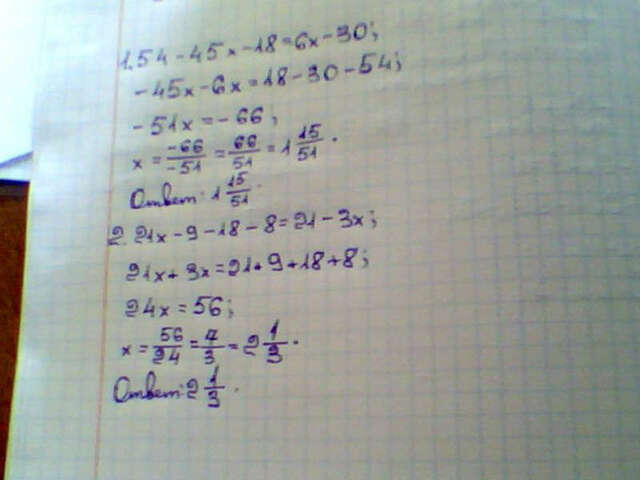 1. 54 - 45x - 18 = 6x - 30;
-45x - 6x = 18 - 30 - 54;
-51x = -66;
x = -66/-51 = 66/51 = 1 15/51.
Ответ: 1 15/51.
2. 21x - 9 - 18 - 8 = 21 - 3x;
21x + 3x = 21 + 9 + 18 + 8;
24x = 56;
x = 56/24 = 7/3 = 2 1/3.
Ответ: 2 1/3.